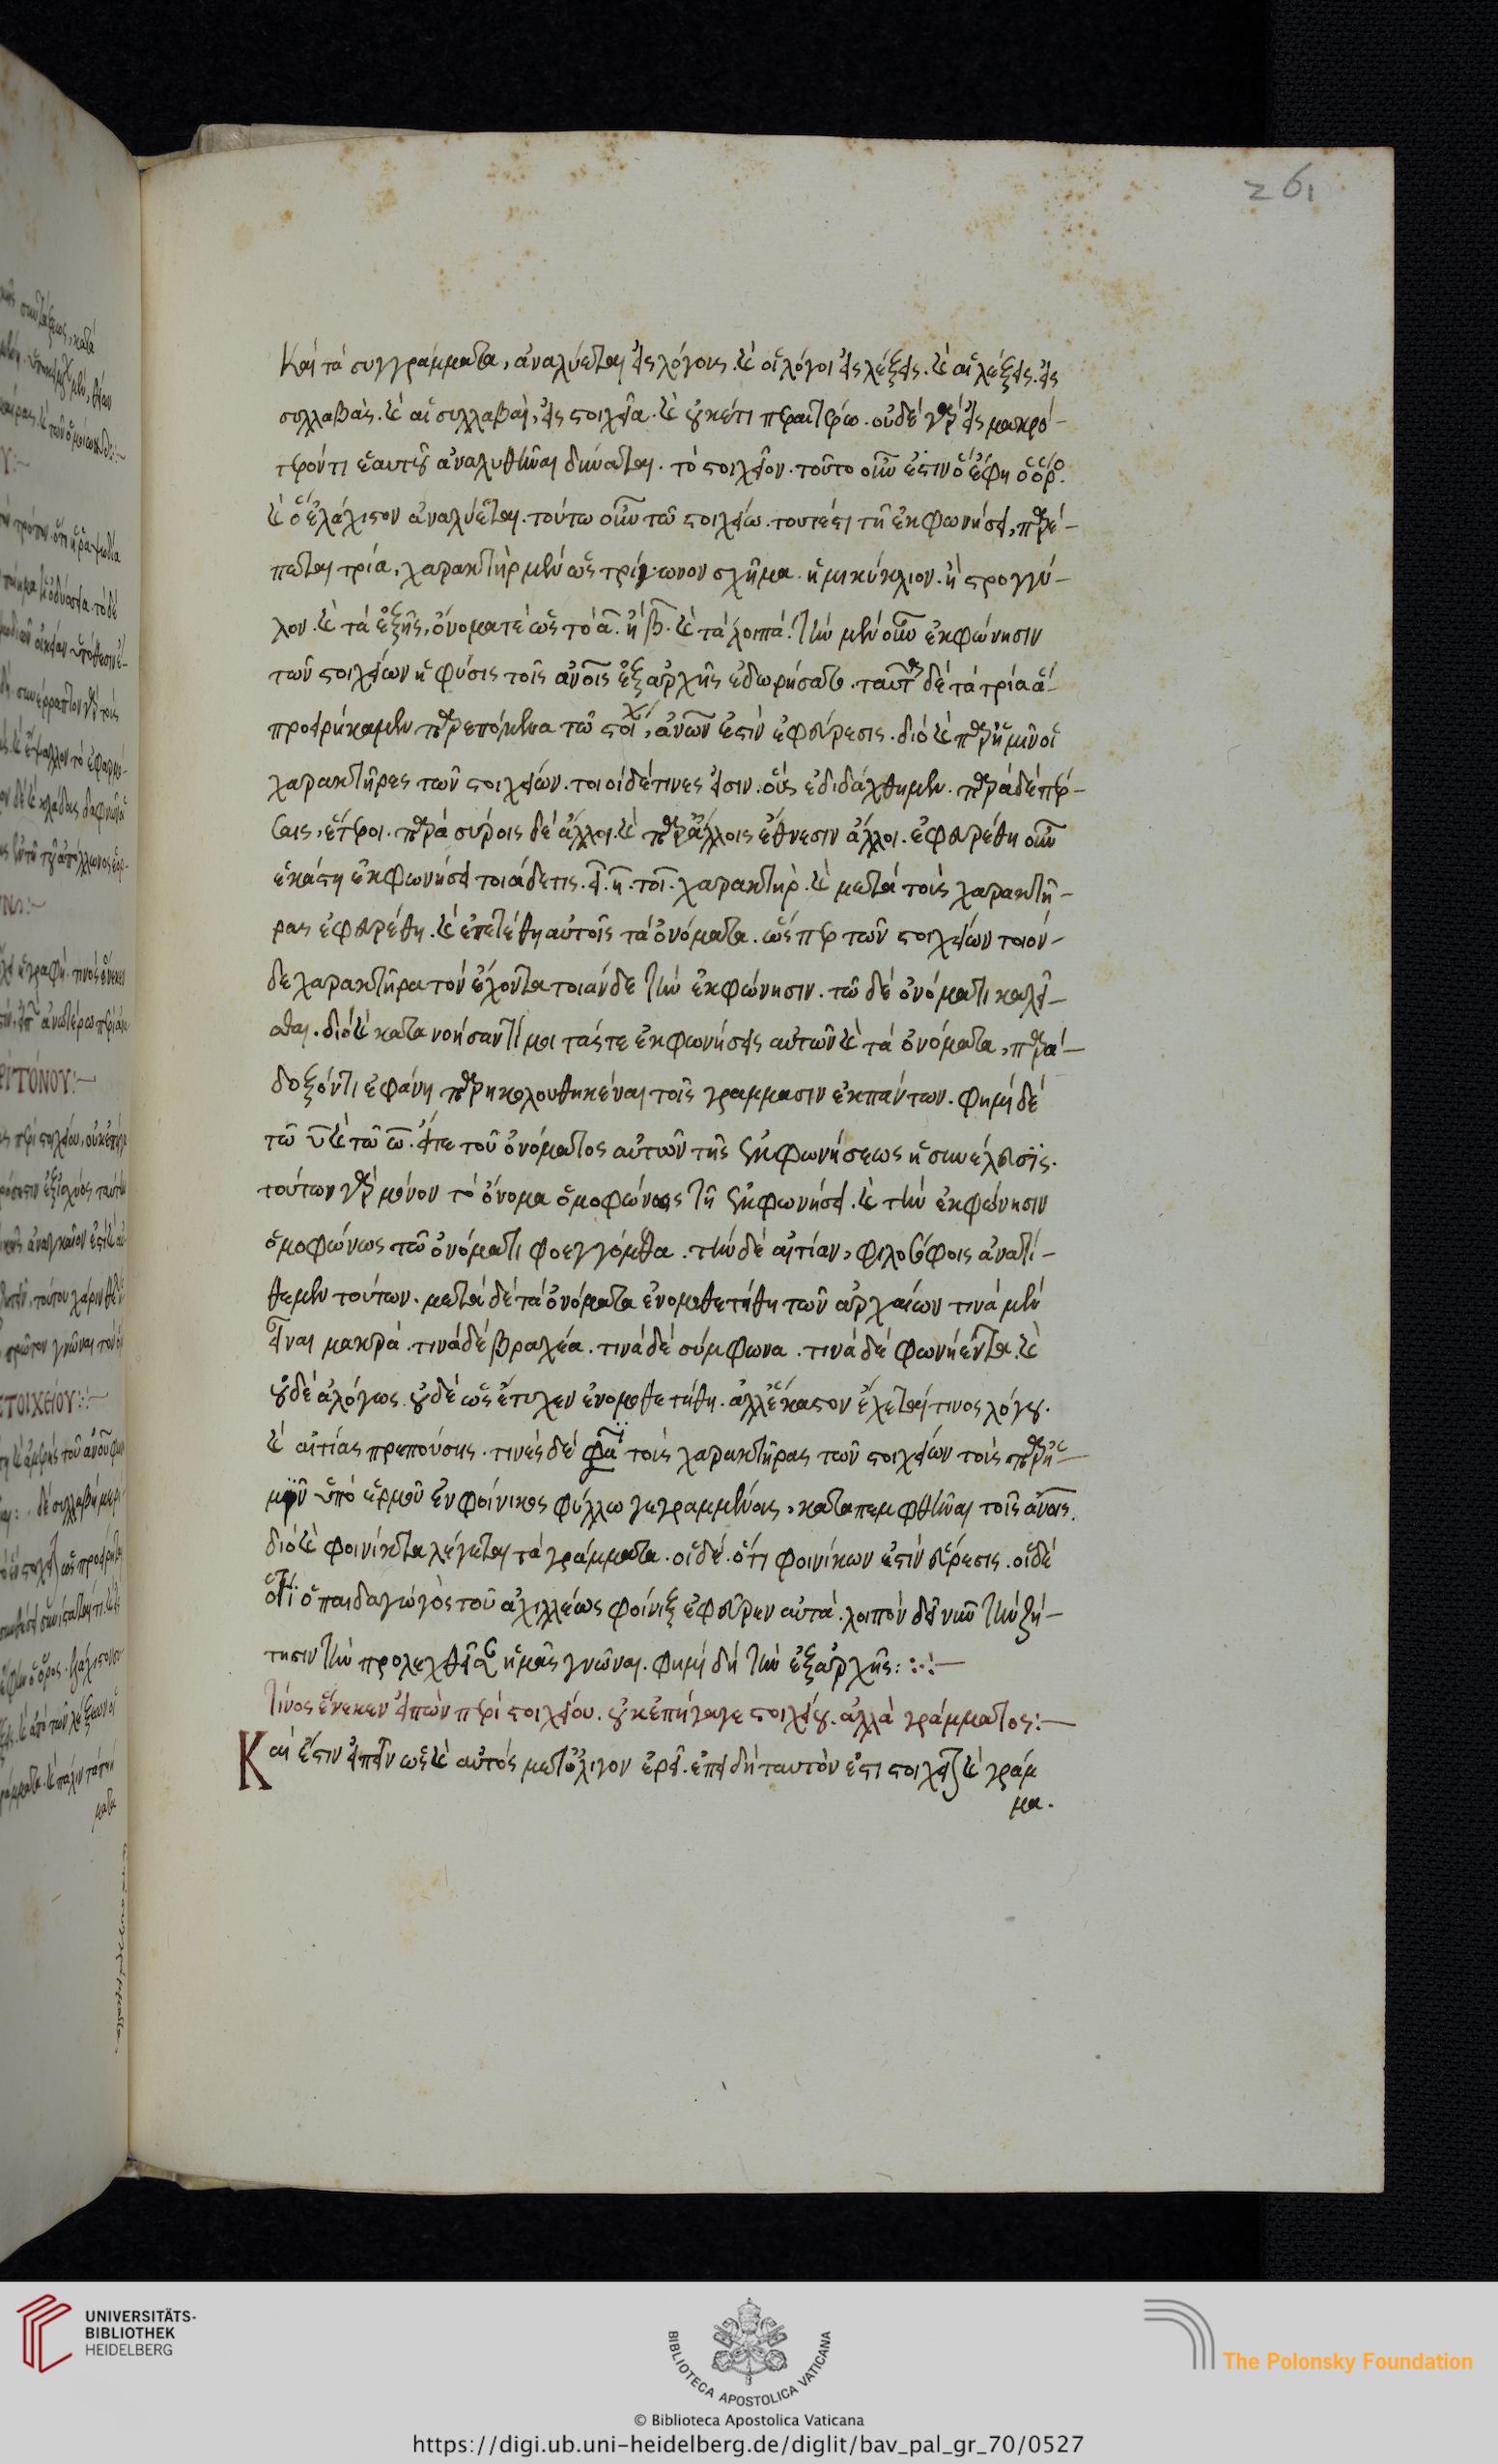 261
Καὶ τὰ συγγράμματα, ἀναλύεται εἰς λόγους. καὶ οἱ λόγοι εἰς λέξεις. καὶ αἱ λέξεις εἰς
συλλαβὰς. καὶ αἱ συλλαβαὶ, εἰς στοιχεῖα. καὶ οὐκέτι περαιτέρω. οὐδὲ γὰρ εἰς μακρό-
τερόν τι ἑαυτοῦ ἀναλυθῆναι δύναται. τὸ στοιχεῖον. τοῦτο οὖν ἐστὶν ὃ ἔφη ὁ ὅρος.
καὶ ὃ ἐλάχιστον ἀναλύεται. τούτω οὖν τῶ στοιχείω. τουτέστι τῆ ἐκφωνήσει, παρέ-
πεται τρία, χαρακτὴρ μὲν ὡς τρίγωνον σχῆμα. ἡμικύκλιον. ἢ στρογγύ-
λον. καὶ τὰ ἑξῆς, ὄνομά τε ὡς τὸ α. ἢ β. καὶ τὰ λοιπά. τὴν μὲν οὖν ἐκφώνησιν
τῶν στοιχείων ἡ φύσις τοῖς ἀνοις ἐξ ἀρχῆς ἐδωρήσατο. ταῦτα δὲ τὰ τρία ἃ
προειρήκαμεν παρεπόμενα τῶ στοιχ, ἀνων ἐστὶν ἐφεύρεσις. διὸ καὶ παρ' ἡμῖν οἱ
χαρακτῆρες τῶν στοιχείων. τοιοίδε τινες εἰσιν. οὓς ἐδιδάχθημεν. παρὰ δὲ πέρ-
σαις, ἕτεροι. παρὰ σύροις δὲ ἄλλοι. καὶ παρ' ἄλλοις ἔθνεσιν ἄλλοι. ἐφευρέθη οὖν
ἑκάστη ἐκφωνήσει τοιάδε τις. εἰ. ἢ. τοι. χαρακτὴρ. καὶ μετὰ τοὺς χαρακτῆ-
ρας ἐφευρέθη. καὶ ἐπετέθη αὐτοῖς τὰ ὀνόματα. ὥσπερ τῶν στοιχείων τοιόν-
δε χαρακτῆρα τὸν ἔχοντα τοιάνδε τὴν ἐκφώνησιν. τῶ δὲ ὀνόματι καλεῖ-
σθαι. διὸ καὶ κατανοήσαντί μοι τάς τε ἐκφωνήσεις αὐτῶν καὶ τὰ ὀνόματα, παρά-
δοξόν τι ἐφάνη παρηκολουθηκέναι τοῖς γράμμασιν ἐκ πάντων. φημὶ δὲ
τῶ υ καὶ τῶ ω. εἴτε τοῦ ὀνόματος αὐτῶν τῆς ἐκφωνήσεως ἡ συνέλευσις.
τούτων γὰρ μόνον τὸ ὄνομα ὁμοφώνως τῆ ἐκφωνήσει. καὶ τὴν ἐκφώνησιν
ὁμοφώνως τῶ ὀνόματι φθεγγόμεθα. τὴν δὲ αἰτίαν, φιλοσόφοις ἀνατί-
θεμεν τούτων. μετὰ δὲ τὰ ὀνόματα ἐνομοθετήθη τῶν ἀρχαίων τινὰ μὲν
εἶναι μακρὰ. τινὰ δὲ βραχέα. τινὰ δὲ σύμφωνα. τινὰ δὲ φωνήεντα. καὶ
οὐδὲ ἀλόγως. οὐδὲ ὡς ἔτυχεν ἐνομοθετήθη. ἀλλ' ἕκαστον ἔχεταί τινος λόγου.
καὶ αἰτίας πρεπούσης. τινὲς δὲ φασι τοὺς χαρακτῆρας τῶν στοιχείων τοὺς παρ' ἡ-
μῖν ὑπὸ ἑρμοῦ ἐν φοίνικος φύλλω γεγραμμένους, καταπεμφθῆναι τοῖς ἀνοις.
διὸ καὶ φοινίκεια λέγεται τὰ γράμματα. οἱ δὲ. ὅτι φοινίκων ἐστὶν εὕρεσις. οἱ δὲ
ὅτι ὁ παιδαγωγὸς τοῦ ἀχιλλέως φοίνιξ ἐφεῦρεν αὐτά. λοιπὸν δεῖ νῦν τὴν ζή-
τησιν τὴν προλεχθεῖσαν ἡμᾶς γνῶναι. φημὶ δὴ τὴν ἐξ ἀρχῆς:
τίνος ἕνεκεν εἰπὼν περὶ στοιχείου. οὐκ ἐπήγαγε στοιχείου. ἀλλὰ γράμματος:
Καὶ ἔστιν εἰπεῖν ὡς καὶ αὐτὸς μετ' ὀλίγον ἐρεῖ. ἐπειδὴ ταυτὸν ἐστι στοιχεῖον καὶ γράμ
μα.
UNIVERSITÄTS-
BIBLIOTHEK
HEIDELBERG
BIBLIOTECA APOSTOLICA VATICANA
The Polonsky Foundation
© Biblioteca Apostolica Vaticana
https://digi.ub.uni-heidelberg.de/diglit/bav_pal_gr_70/0527